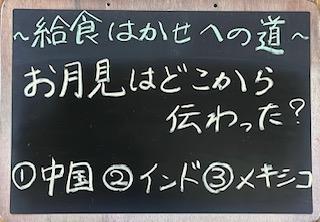 ~給食はかせへの道~
お月見はどこから
伝わった?
①中国②インド③メキシコ